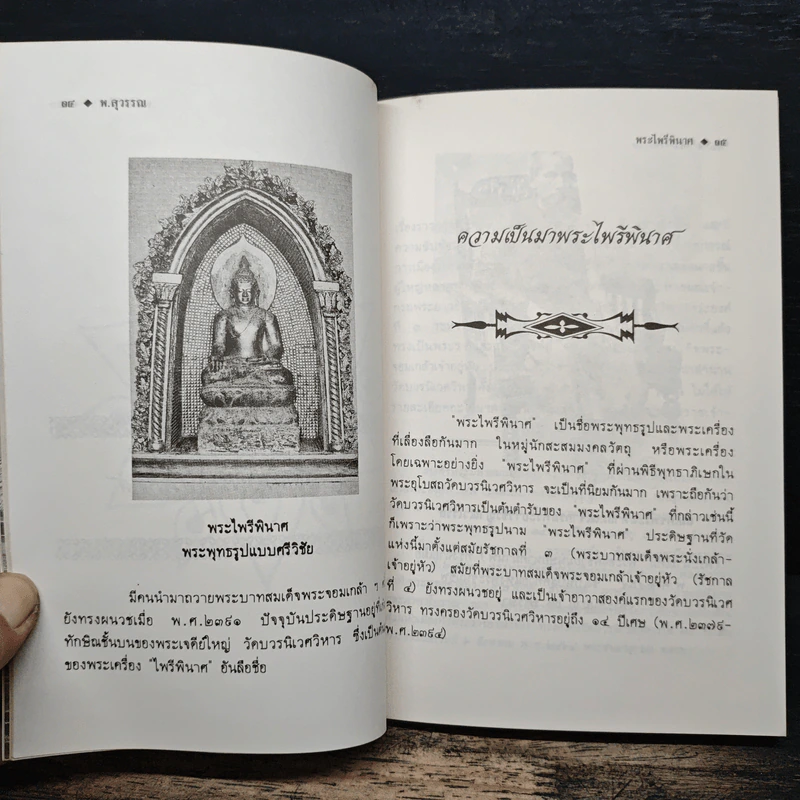 ๑๔ ◆ พ.สุวรรณ
พระไพรีพินาศ
พระพุทธรูปแบบศรีวิชัย
มีคนนำมาถวายพระบาทสมเด็จพระจอมเกล้า ฯ
ยังทรงผนวชเมื่อ พ.ศ.๒๓๙๑ ปัจจุบันประดิษฐานอยู่ที่
ทักษิณชั้นบนของพระเจดีย์ใหญ่ วัดบวรนิเวศวิหาร ซึ่งเป็น
ของพระเครื่อง "ไพรีพินาศ" อันลือชื่อ
พระไพรีพินาศ ◆ ๑๕
ความเป็นมาพระไพรีพินาศ
"พระไพรีพินาศ" เป็นชื่อพระพุทธรูปและพระเครื่อง
ที่เลื่องลือกันมาก ในหมู่นักสะสมมงคลวัตถุ หรือพระเครื่อง
โดยเฉพาะอย่างยิ่ง "พระไพรีพินาศ" ที่ผ่านพิธีพุทธาภิเษกใน
พระอุโบสถวัดบวรนิเวศวิหาร จะเป็นที่นิยมกันมาก เพราะถือกันว่า
วัดบวรนิเวศวิหารเป็นต้นตำรับของ "พระไพรีพินาศ" ที่กล่าวเช่นนี้
ก็เพราะว่าพระพุทธรูปนาม "พระไพรีพินาศ" ประดิษฐานที่วัด
แห่งนี้มาตั้งแต่สมัยรัชกาลที่ ๓ (พระบาทสมเด็จพระนั่งเกล้า-
เจ้าอยู่หัว) สมัยที่พระบาทสมเด็จพระจอมเกล้าเจ้าอยู่หัว (รัชกาล
ที่ ๔) ยังทรงผนวชอยู่ และเป็นเจ้าอาวาสองค์แรกของวัดบวรนิเวศ
วิหาร ทรงครองวัดบวรนิเวศวิหารอยู่ถึง ๑๔ ปีเศษ (พ.ศ.๒๓๗๙-
พ.ศ.๒๓๙๔)